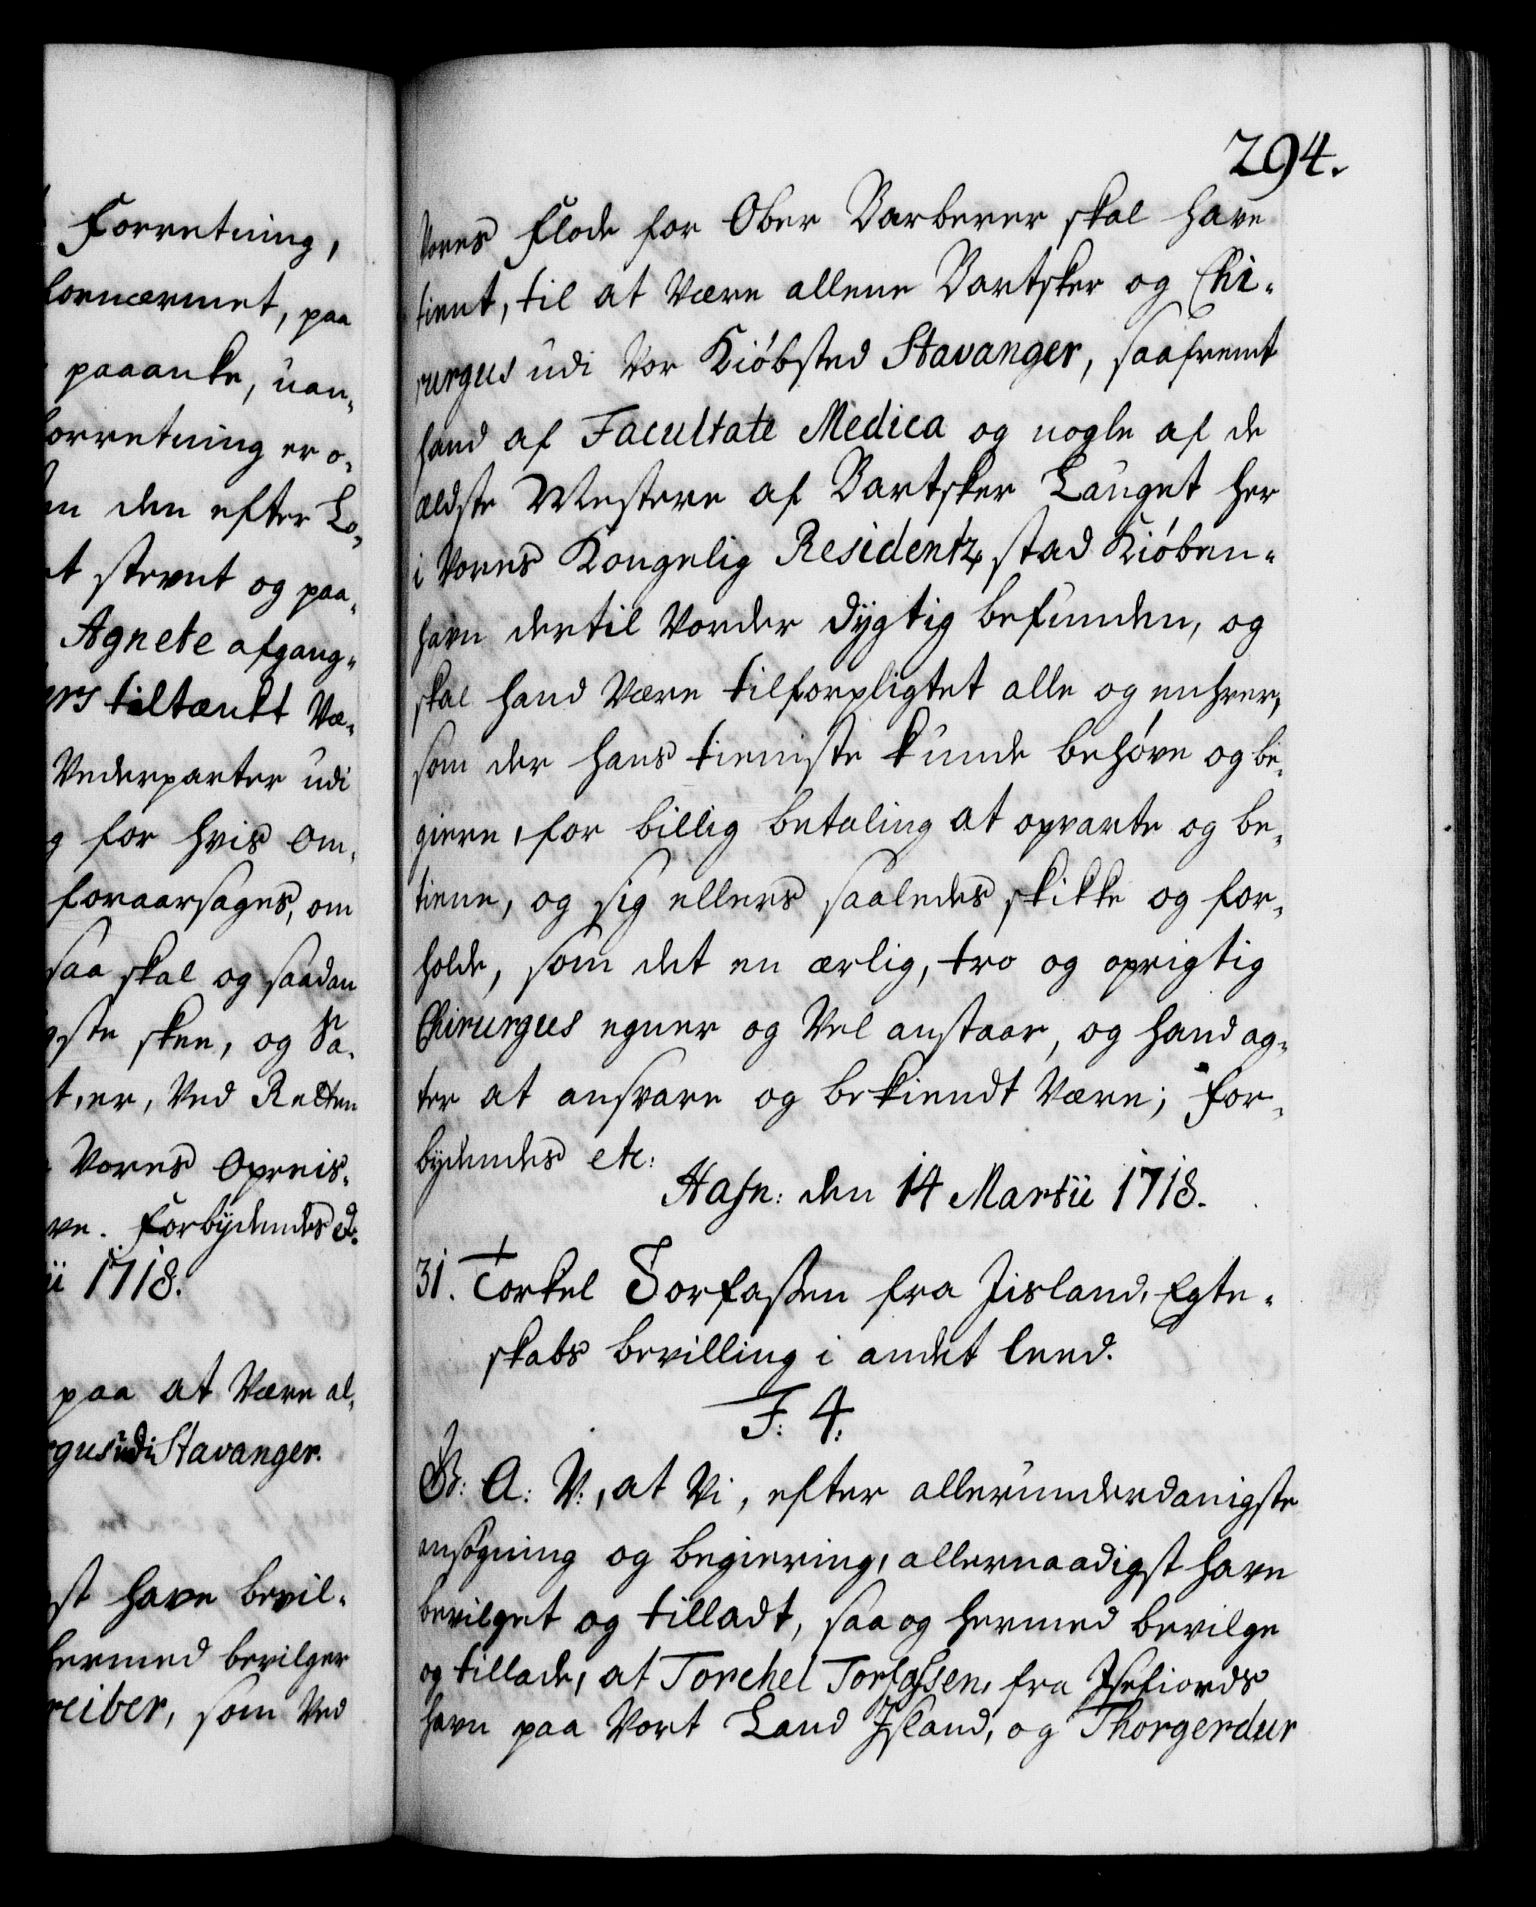 Forretning,
fornærmet, paa
paaanke, uan-
forretning er o-
den efter Lo-
stevnt og paa-
Agnete afgang-
tiltænkt Væ-
Vederparter udi
for hvis om-
foraarsages, om
saa skal og saadan
skee, og Sa-
er, Ved Retten
Vores Opreis-
Forbydendes
1718.
paa at Være al-
udi Stavanger.
have bevil-
hermed bevilger
som Ved
294.
Vores Flode for Ober Barberer skal have
tient, til at Være allene Bartsker og Chi-
rurgus udi Vor Kiøbsted Stavanger, saafremt
hand af Facultate Medica og nogle af de
ældste Mestere af Bartsker Lauget her
i Vores Kongelig Residentz stad Kiøben-
havn dertil Vorder dygtig befunden, og
skal hand Være tilforpligtet alle og enhver,
som der hans tieniste kunde behøve og be-
giere, for billig betaling at opvarte og be-
tiene, og sig ellers saaledes skikke og for-
holde, som det en ærlig, tro og oprigtig
Chirurgus egner og Vel anstaar, og hand ag-
ter at ansvare og bekiendt Være; For-
bydendes etc:
Hafn: den 14 Martii 1718.
31. Torkel Torfassen fra Jisland, Egte-
skabs bevilling i andet leed.
F: 4:
G: A: V:, at Vi, efter allerunderdanigste
ansøgning og begiering, allernaadigst have
bevilget og tilladt, saa og hermed bevilge
og tillade, at Torchel Torfassen, fra Isefiords
havn paa Vort Land Jsland, og Thorgerdur